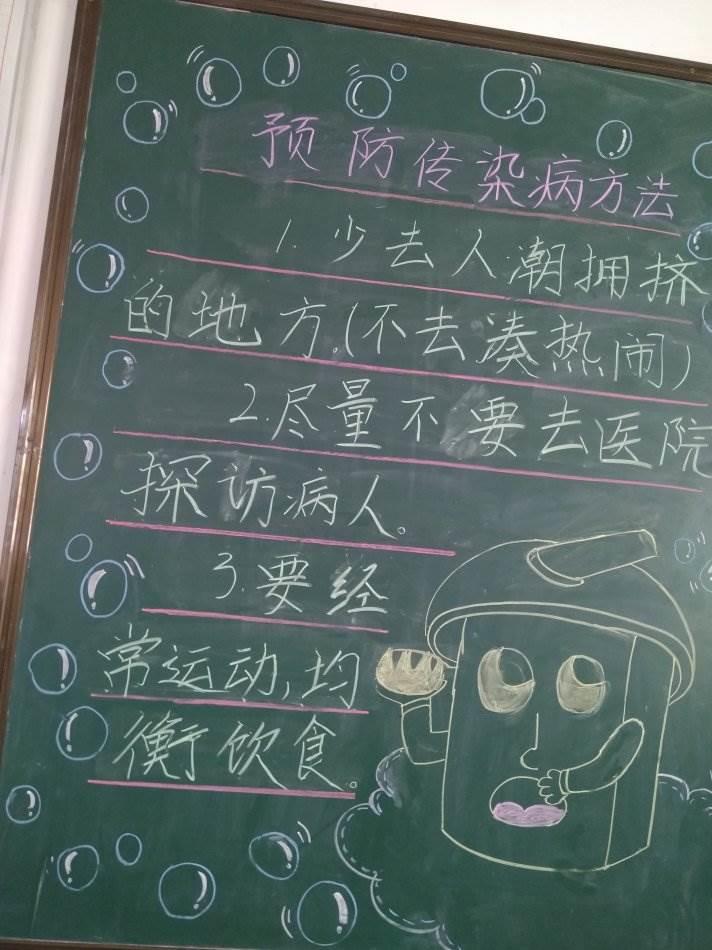 预防传染病方法
1.少去人潮拥挤
的地方.(不去凑热闹)
2.尽量不要去医院
探访病人。
3.要经
常运动,均
衡饮食。